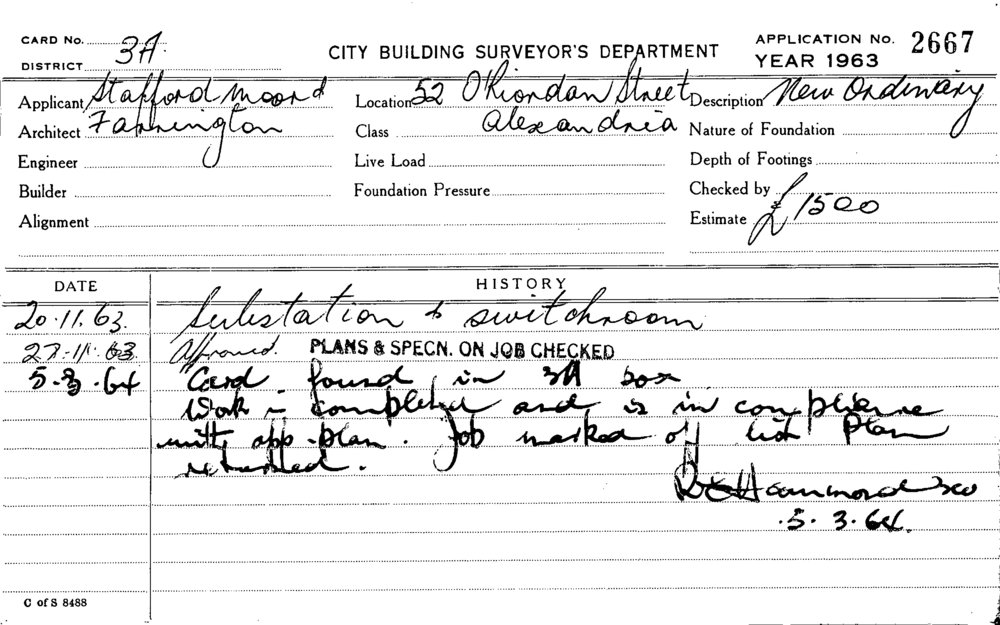 CARD No. 3A
DISTRICT
CITY BUILDING SURVEYOR'S DEPARTMENT
APPLICATION No. 2667
YEAR 1963
Applicant Stafford Moor &
Architect Farrington
Engineer
Builder
Alignment
Location 52 O'Riordan Street
Class Alexandria
Live Load
Foundation Pressure
Description New Ordinary
Nature of Foundation
Depth of Footings
Checked by
Estimate £1500
DATE
HISTORY
20.11.63. Substation & switchroom
27.11.63. Approved. PLANS & SPECN. ON JOB CHECKED
5.3.64 Card found in 3A box
Work is completed and is in compliance
with app. plan. Job marked off list Plan
returned.
Hammond
5.3.64.
C of S 8488